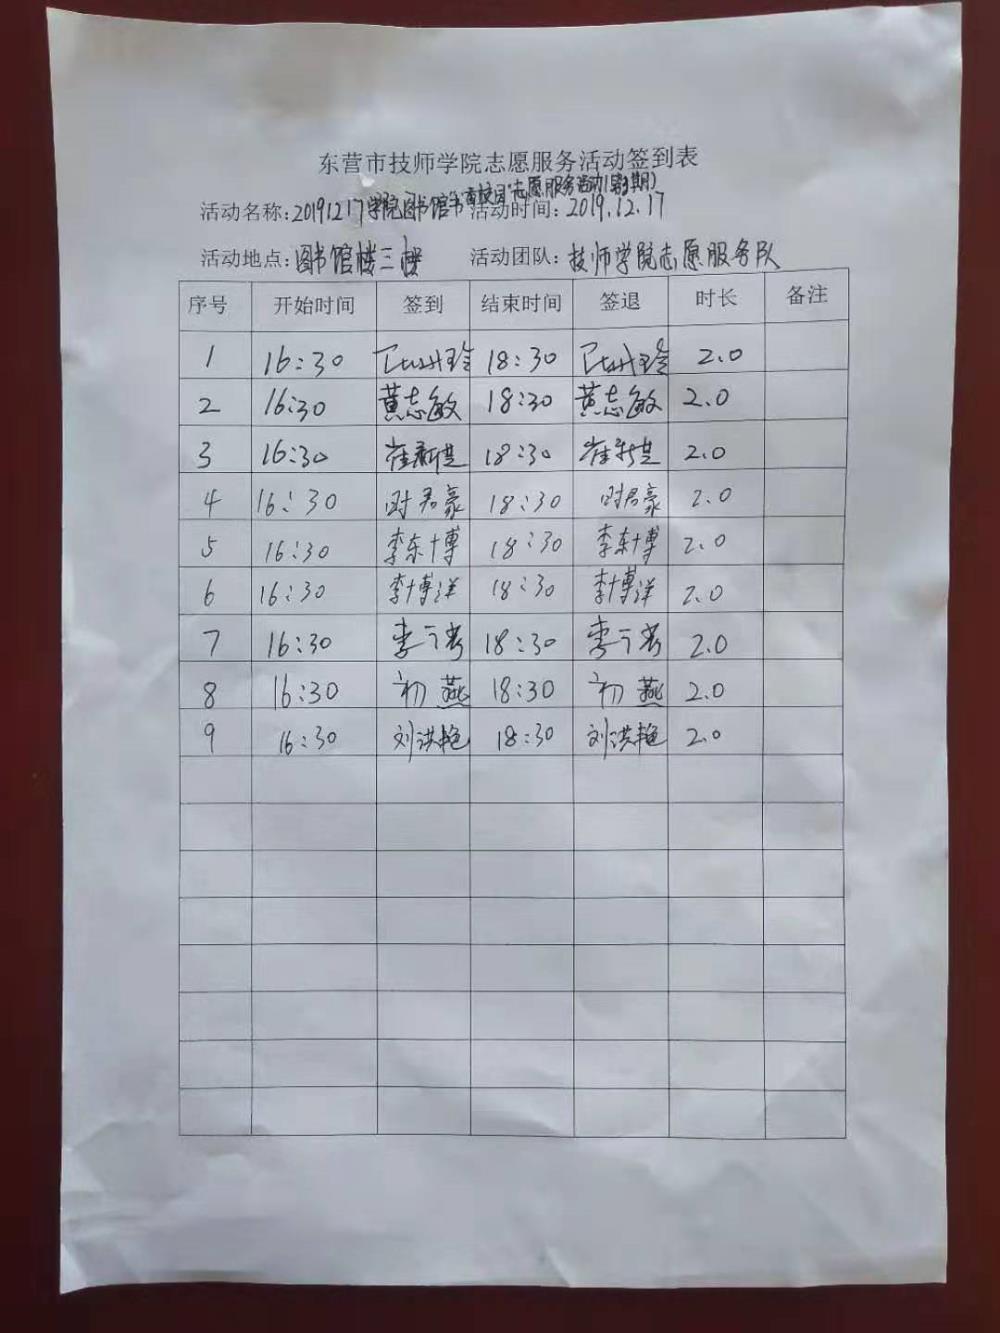 东营市技师学院志愿服务活动签到表
活动名称:20191217学院图书馆"书香校园"志愿服务活动(第3期) 活动时间:2019.12.17
活动地点:图书馆楼三楼 活动团队:技师学院志愿服务队
序号 开始时间 签到 结束时间 签退 时长 备注
1 16:30 18:30 2.0
2 16:30 黄志敏 18:30 黄志敏 2.0
3 16:30 崔新芸 18:30 崔新芸 2.0
4 16:30 时君豪 18:30 时君豪 2.0
5 16:30 李东博 18:30 李东博 2.0
6 16:30 李博洋 18:30 李博洋 2.0
7 16:30 李 18:30 李 2.0
8 16:30 初燕 18:30 初燕 2.0
9 16:30 刘洪艳 18:30 刘洪艳 2.0